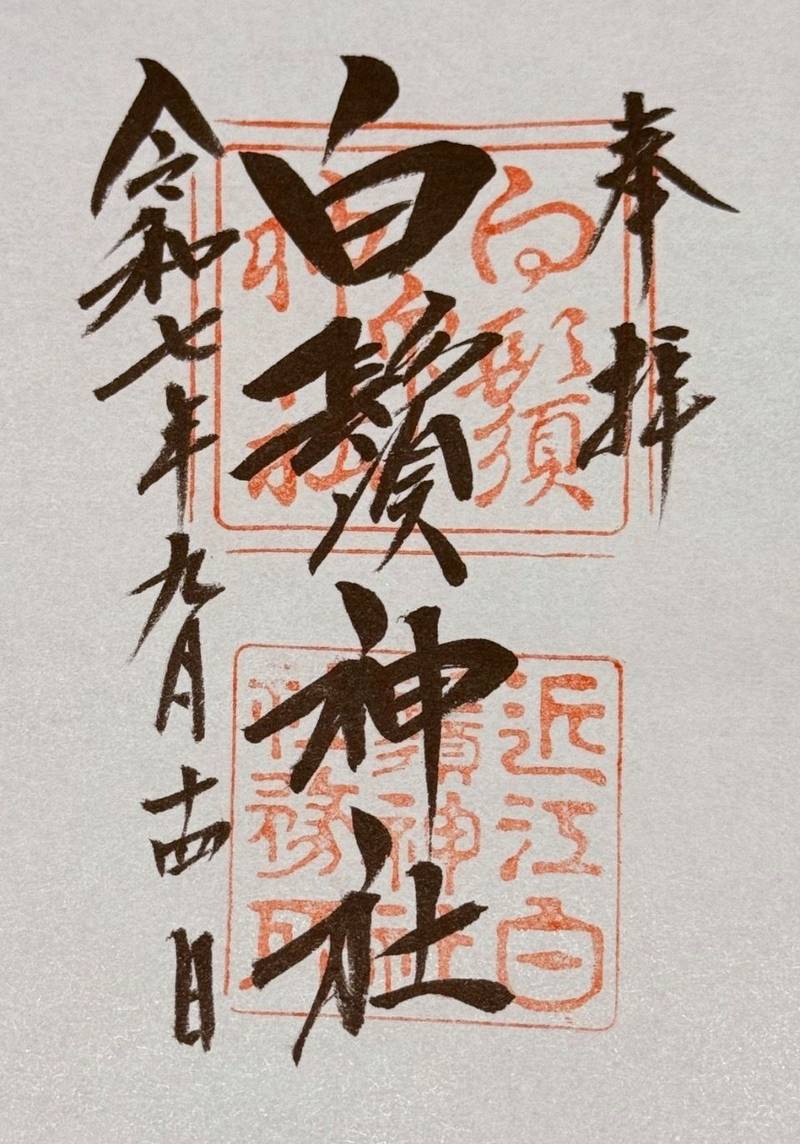 奉拝
白鬚神社
令和七年九月十四日
白鬚
神社
近江白
鬚神社
社務所